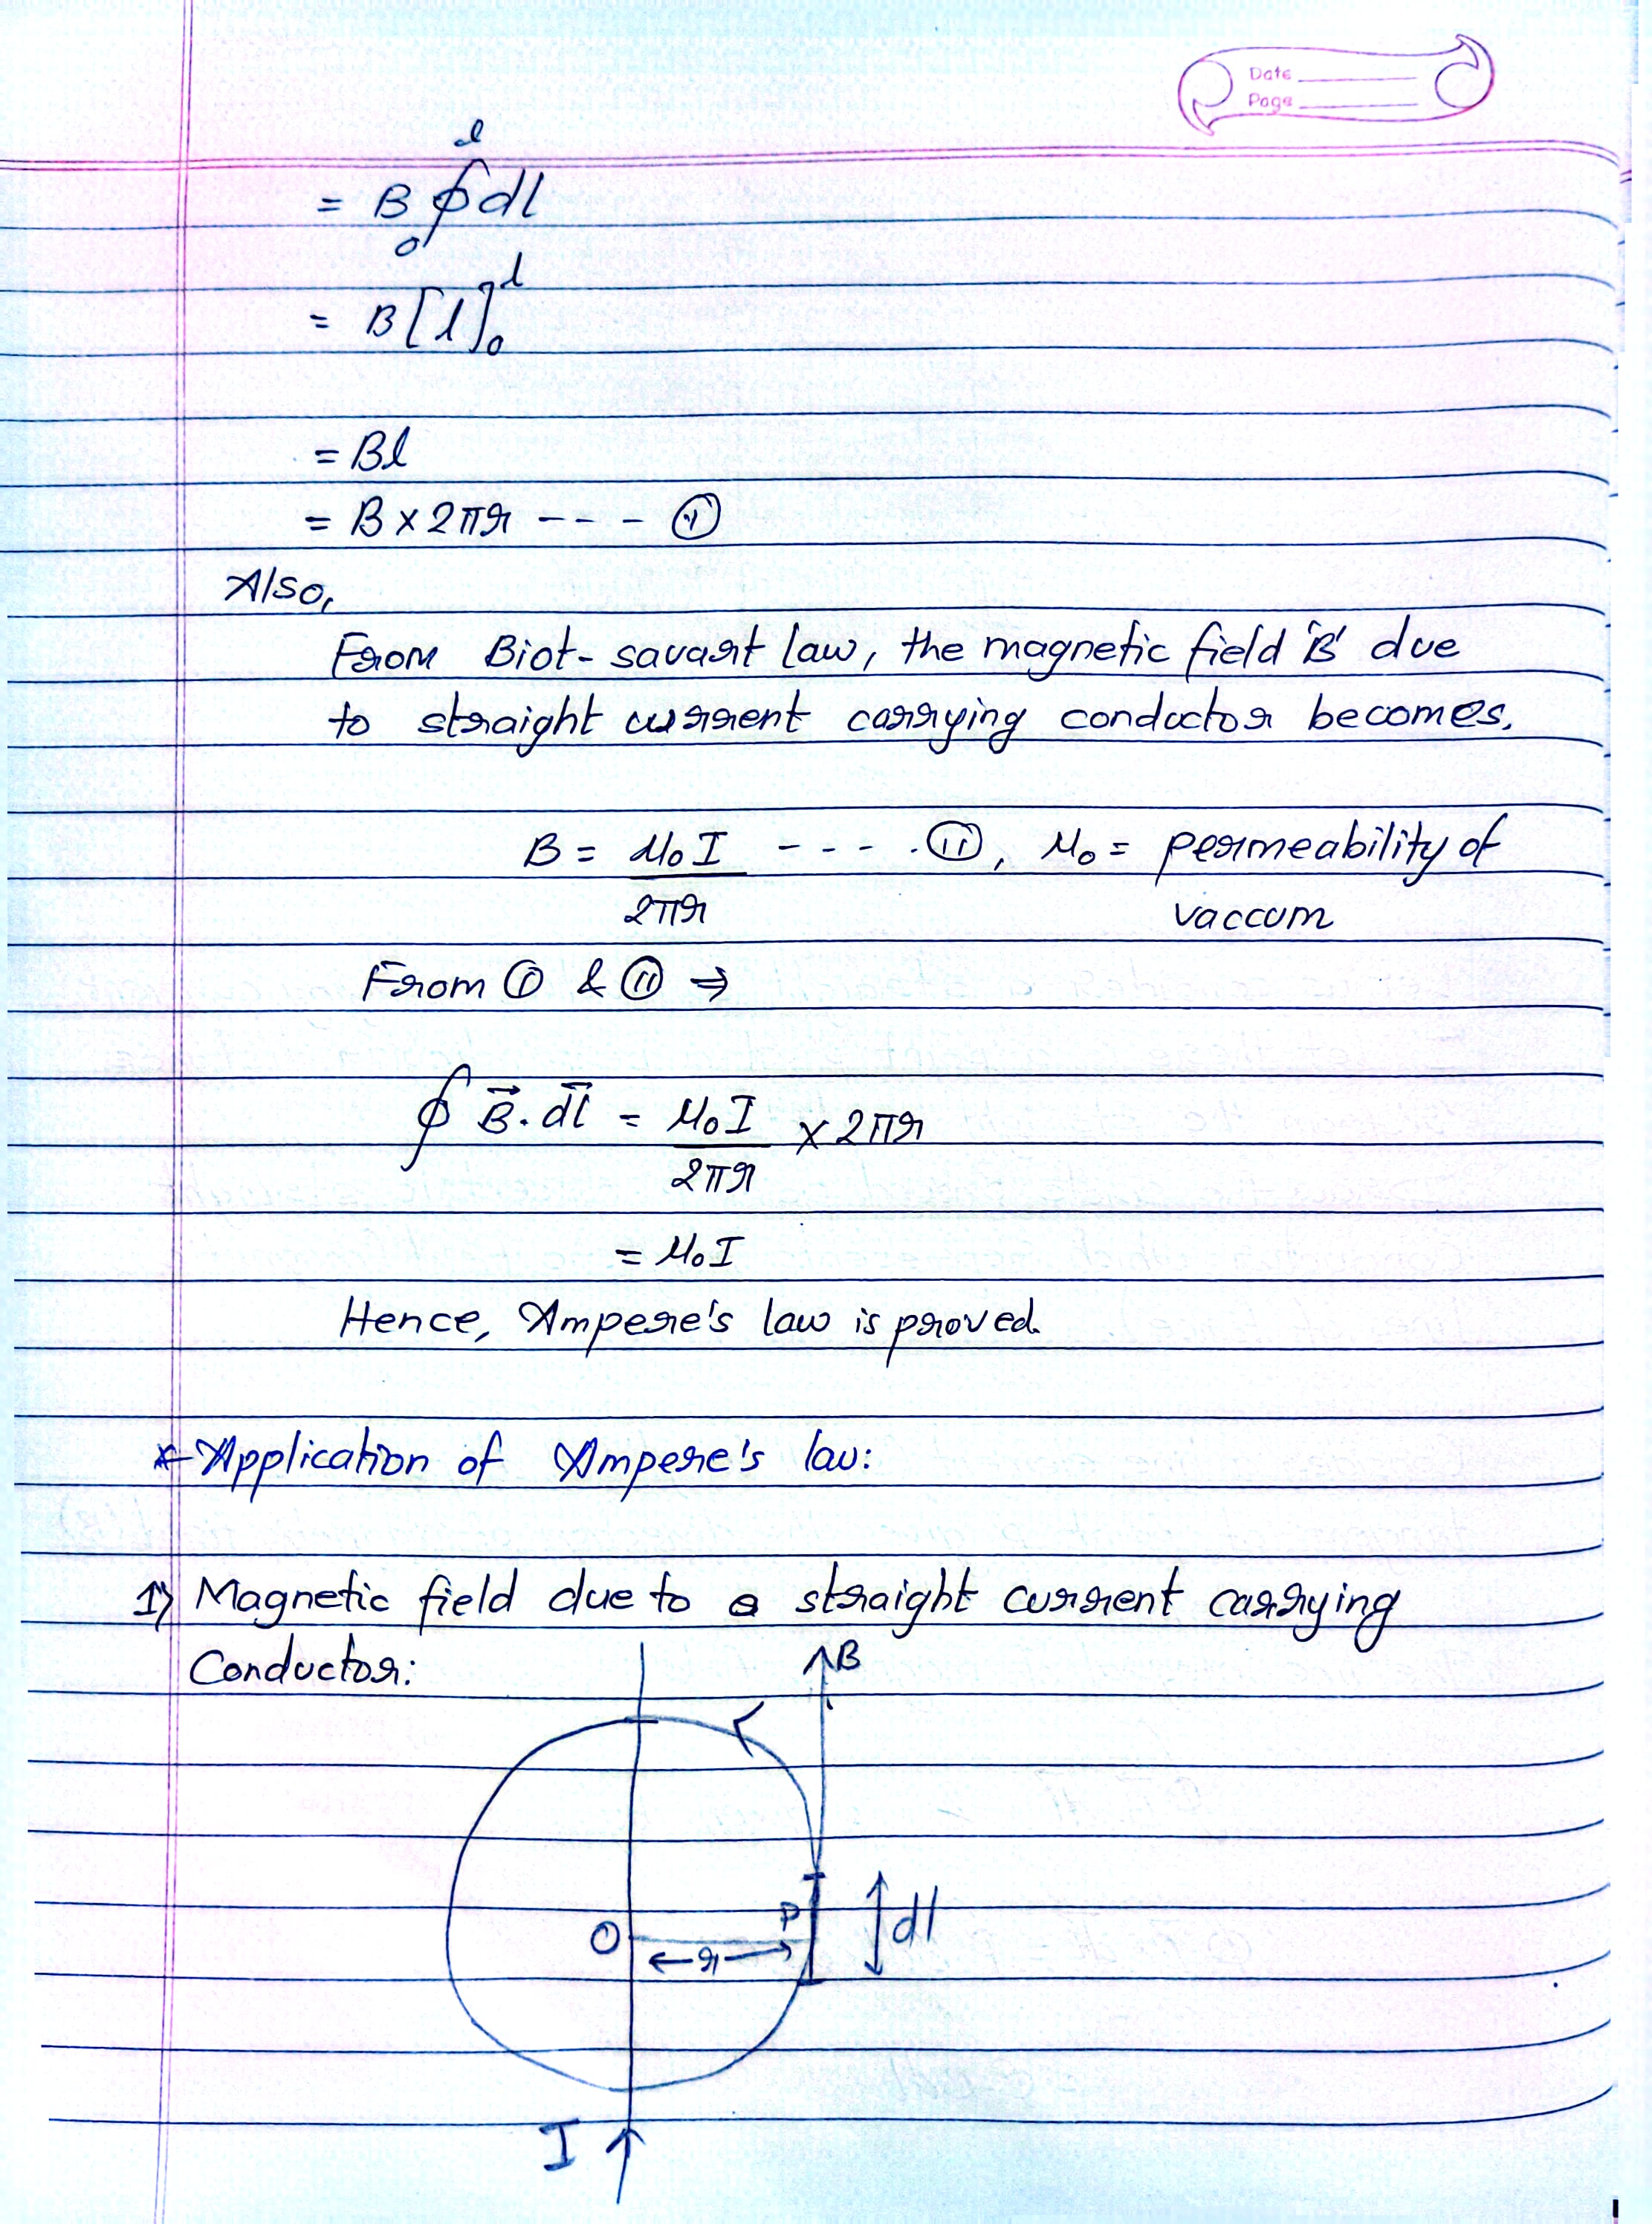 Date
Page
= B ∮₀ˡ dl
= B[l]₀ˡ
= Bl
= B × 2πr ---- (i)
Also,
From Biot-savart law, the magnetic field 'B' due
to straight current carrying conductor becomes,
B = μ₀I / 2πr ---- (ii), μ₀ = permeability of
vaccum
From (i) & (ii) ⇒
∮ B⃗. dl⃗ = μ₀I / 2πr × 2πr
= μ₀I
Hence, Ampere's law is proved.
* Application of Ampere's law:
1) Magnetic field due to a straight current carrying
Conductor:
B
O
P
dl
r
I